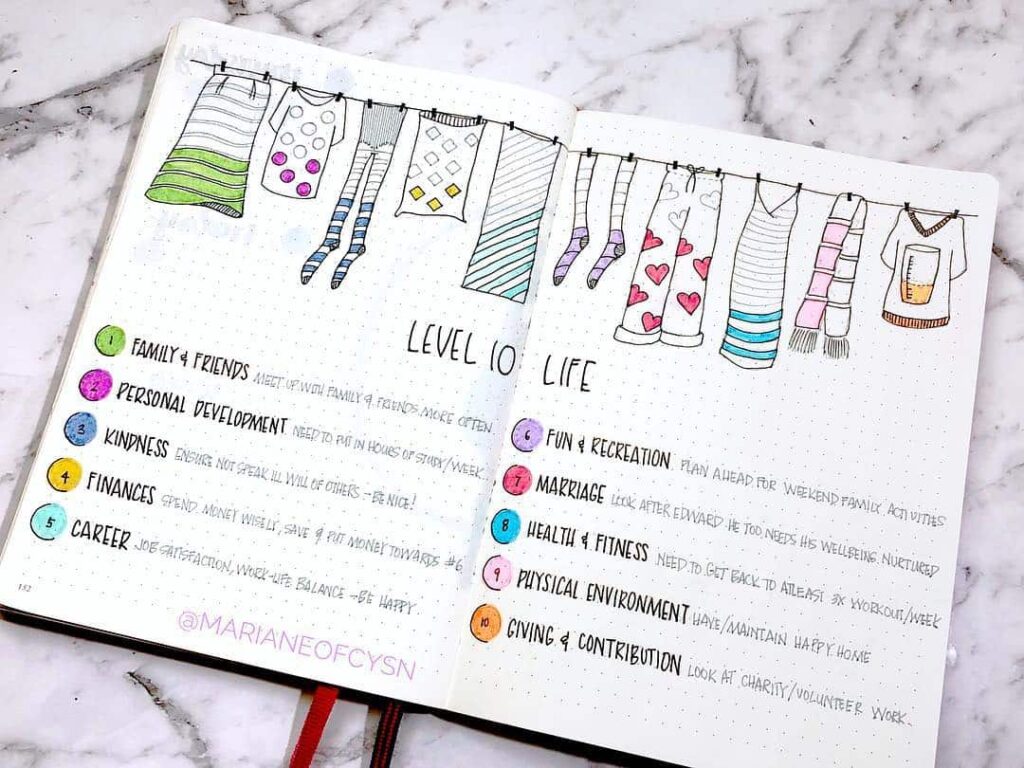 LEVEL 10 LIFE
1 FAMILY & FRIENDS MEET UP WITH FAMILY & FRIENDS MORE OFTEN
2 PERSONAL DEVELOPMENT NEED TO PUT IN HOURS OF STUDY/WEEK
3 KINDNESS ENSURE NOT SPEAK ILL WILL OF OTHERS - BE NICE!
4 FINANCES SPEND MONEY WISELY, SAVE & PUT MONEY TOWARDS #6
5 CAREER JOB SATISFACTION, WORK-LIFE BALANCE - BE HAPPY
152
@MARIANEOFCYSN
6 FUN & RECREATION PLAN AHEAD FOR WEEKEND FAMILY ACTIVITIES
7 MARRIAGE LOOK AFTER EDWARD. HE TOO NEEDS HIS WELLBEING NURTURED
8 HEALTH & FITNESS NEED TO GET BACK TO ATLEAST 3X WORKOUT/WEEK
9 PHYSICAL ENVIRONMENT HAVE/MAINTAIN HAPPY HOME
10 GIVING & CONTRIBUTION LOOK AT CHARITY/VOLUNTEER WORK.